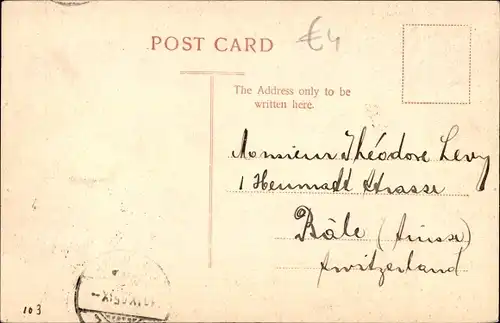 POST CARD
€4
The Address only to be
written here.
Monsieur Théodore Levy
1 Heumadt Strasse
Bâle (Suisse)
Switzerland
103